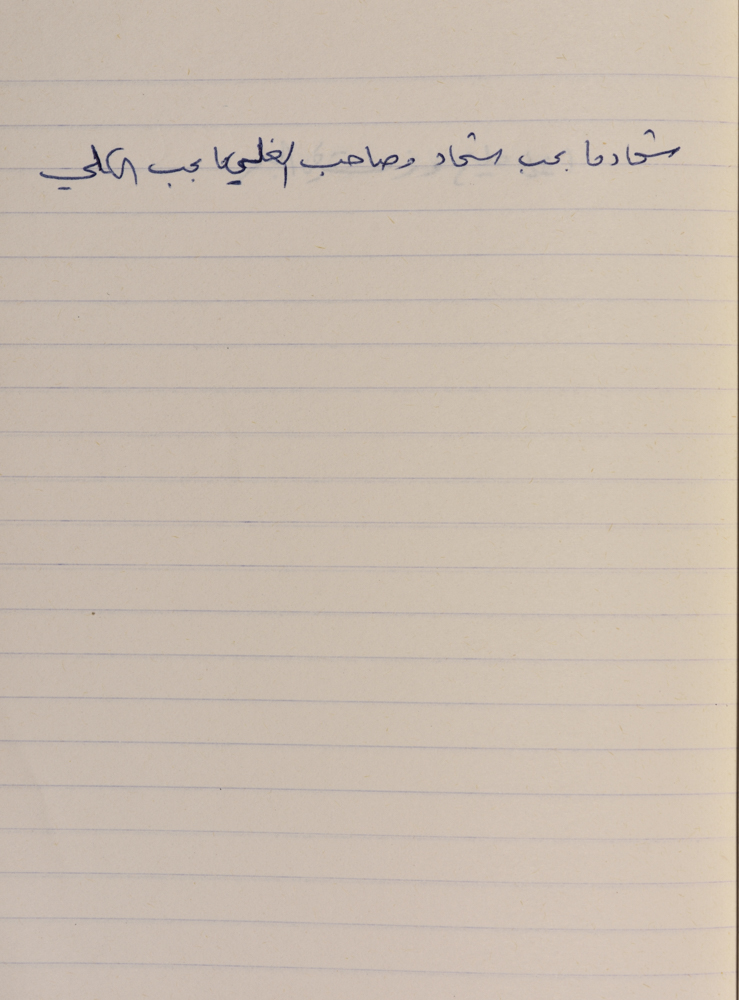 شحاد ما بحب شحاد وصاحب الغلي ما بحب الكلي